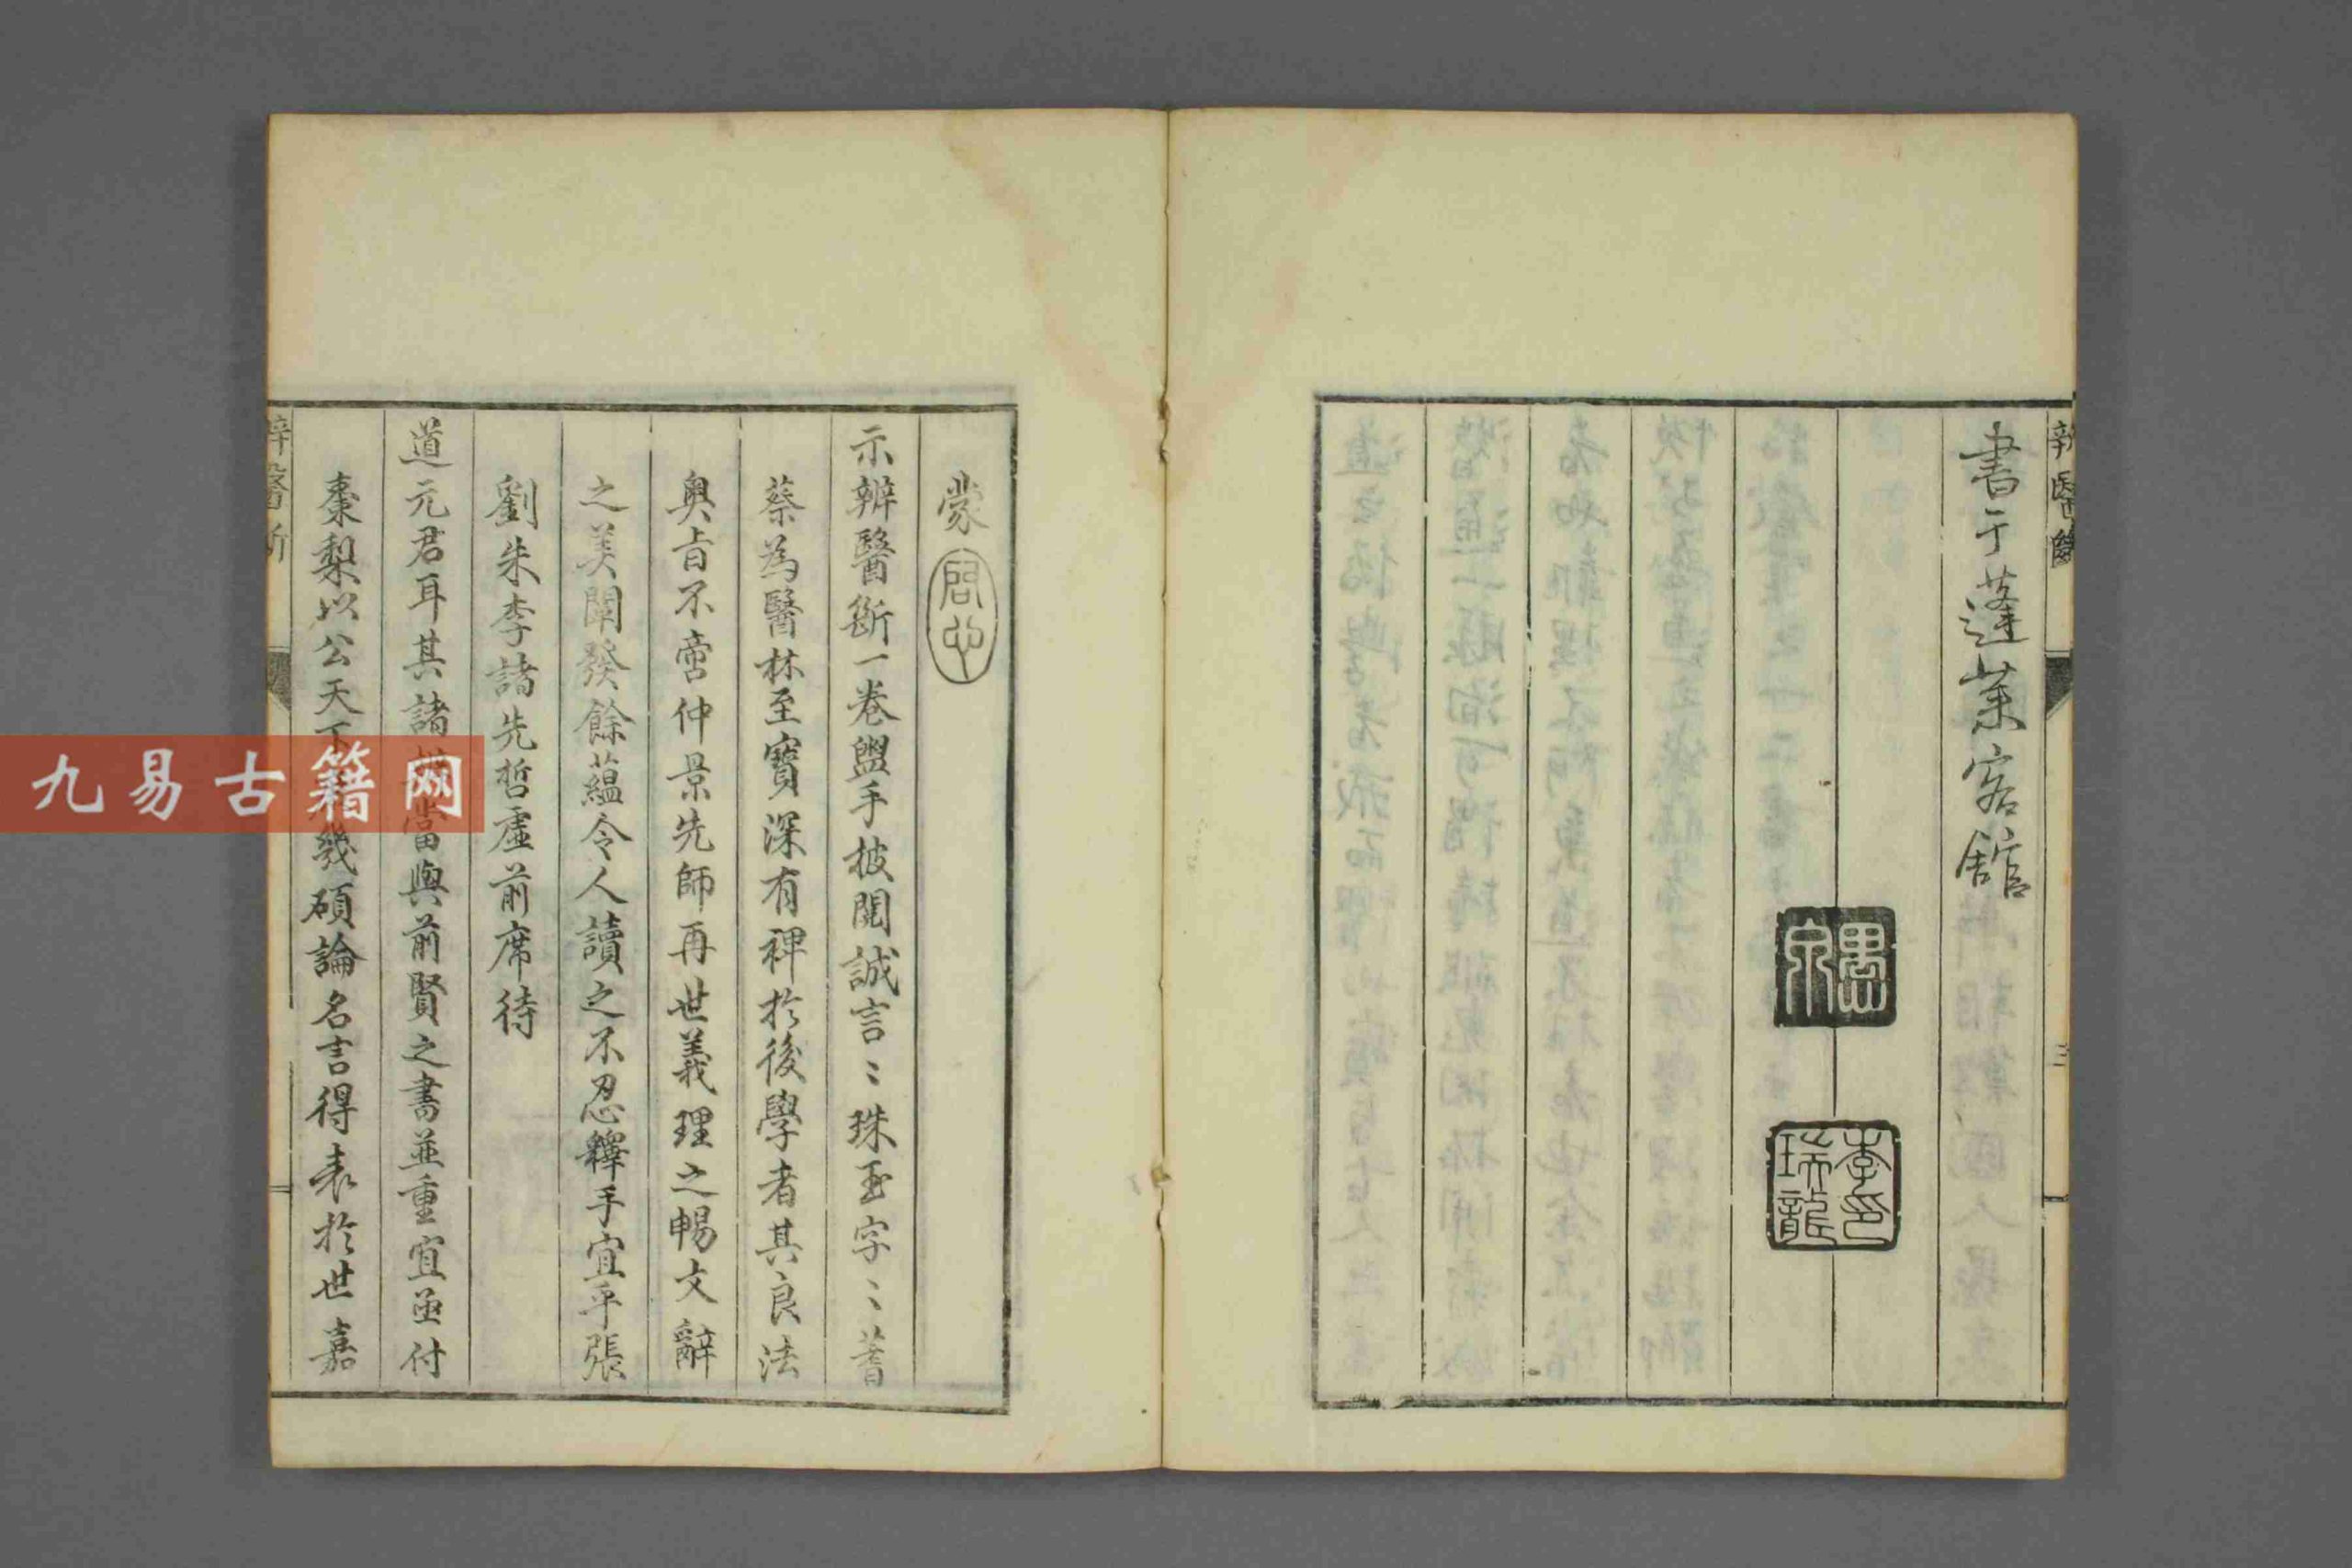 書于蓬萊客館
李印瑞龍
蒙
啓心
示辨醫斷一卷盥手披閱誠言〻珠玉字〻蓍
蔡為醫林至寶深有裨於後學者其良法
奧旨不啻仲景先師再世義理之暢文辭
之美闡發餘蘊令人讀之不忍釋手宜乎張
劉朱李諸先哲虛前席待
道元君耳其諸當與前賢之書並重宜亟付
棗梨以公天下幾碩論名言得表於世嘉
辨醫斷
九易古籍网